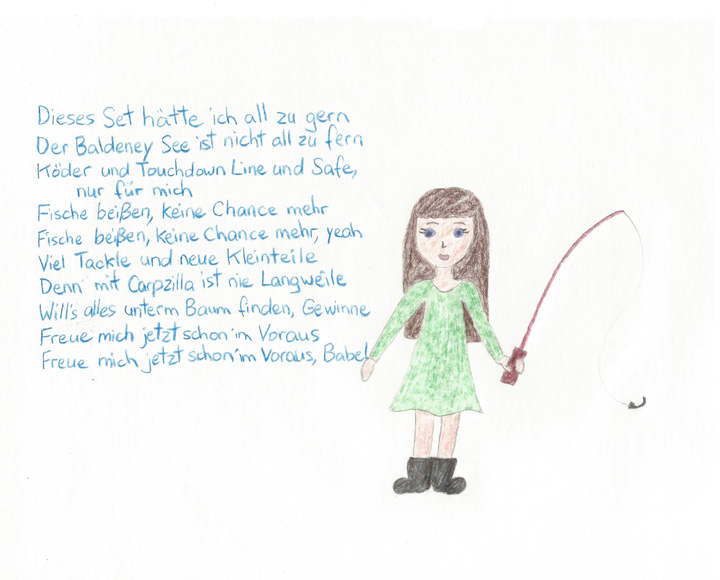 Dieses Set hätte ich all zu gern
Der Baldeney See ist nicht all zu fern
Köder und Touchdown Line und Safe,
nur für mich
Fische beißen, keine Chance mehr
Fische beißen, keine Chance mehr, yeah
Viel Tackle und neue Kleinteile
Denn mit Carpzilla ist nie Langweile
Will's alles unterm Baum finden, Gewinne
Freue mich jetzt schon im Voraus
Freue mich jetzt schon im Voraus, Babe!